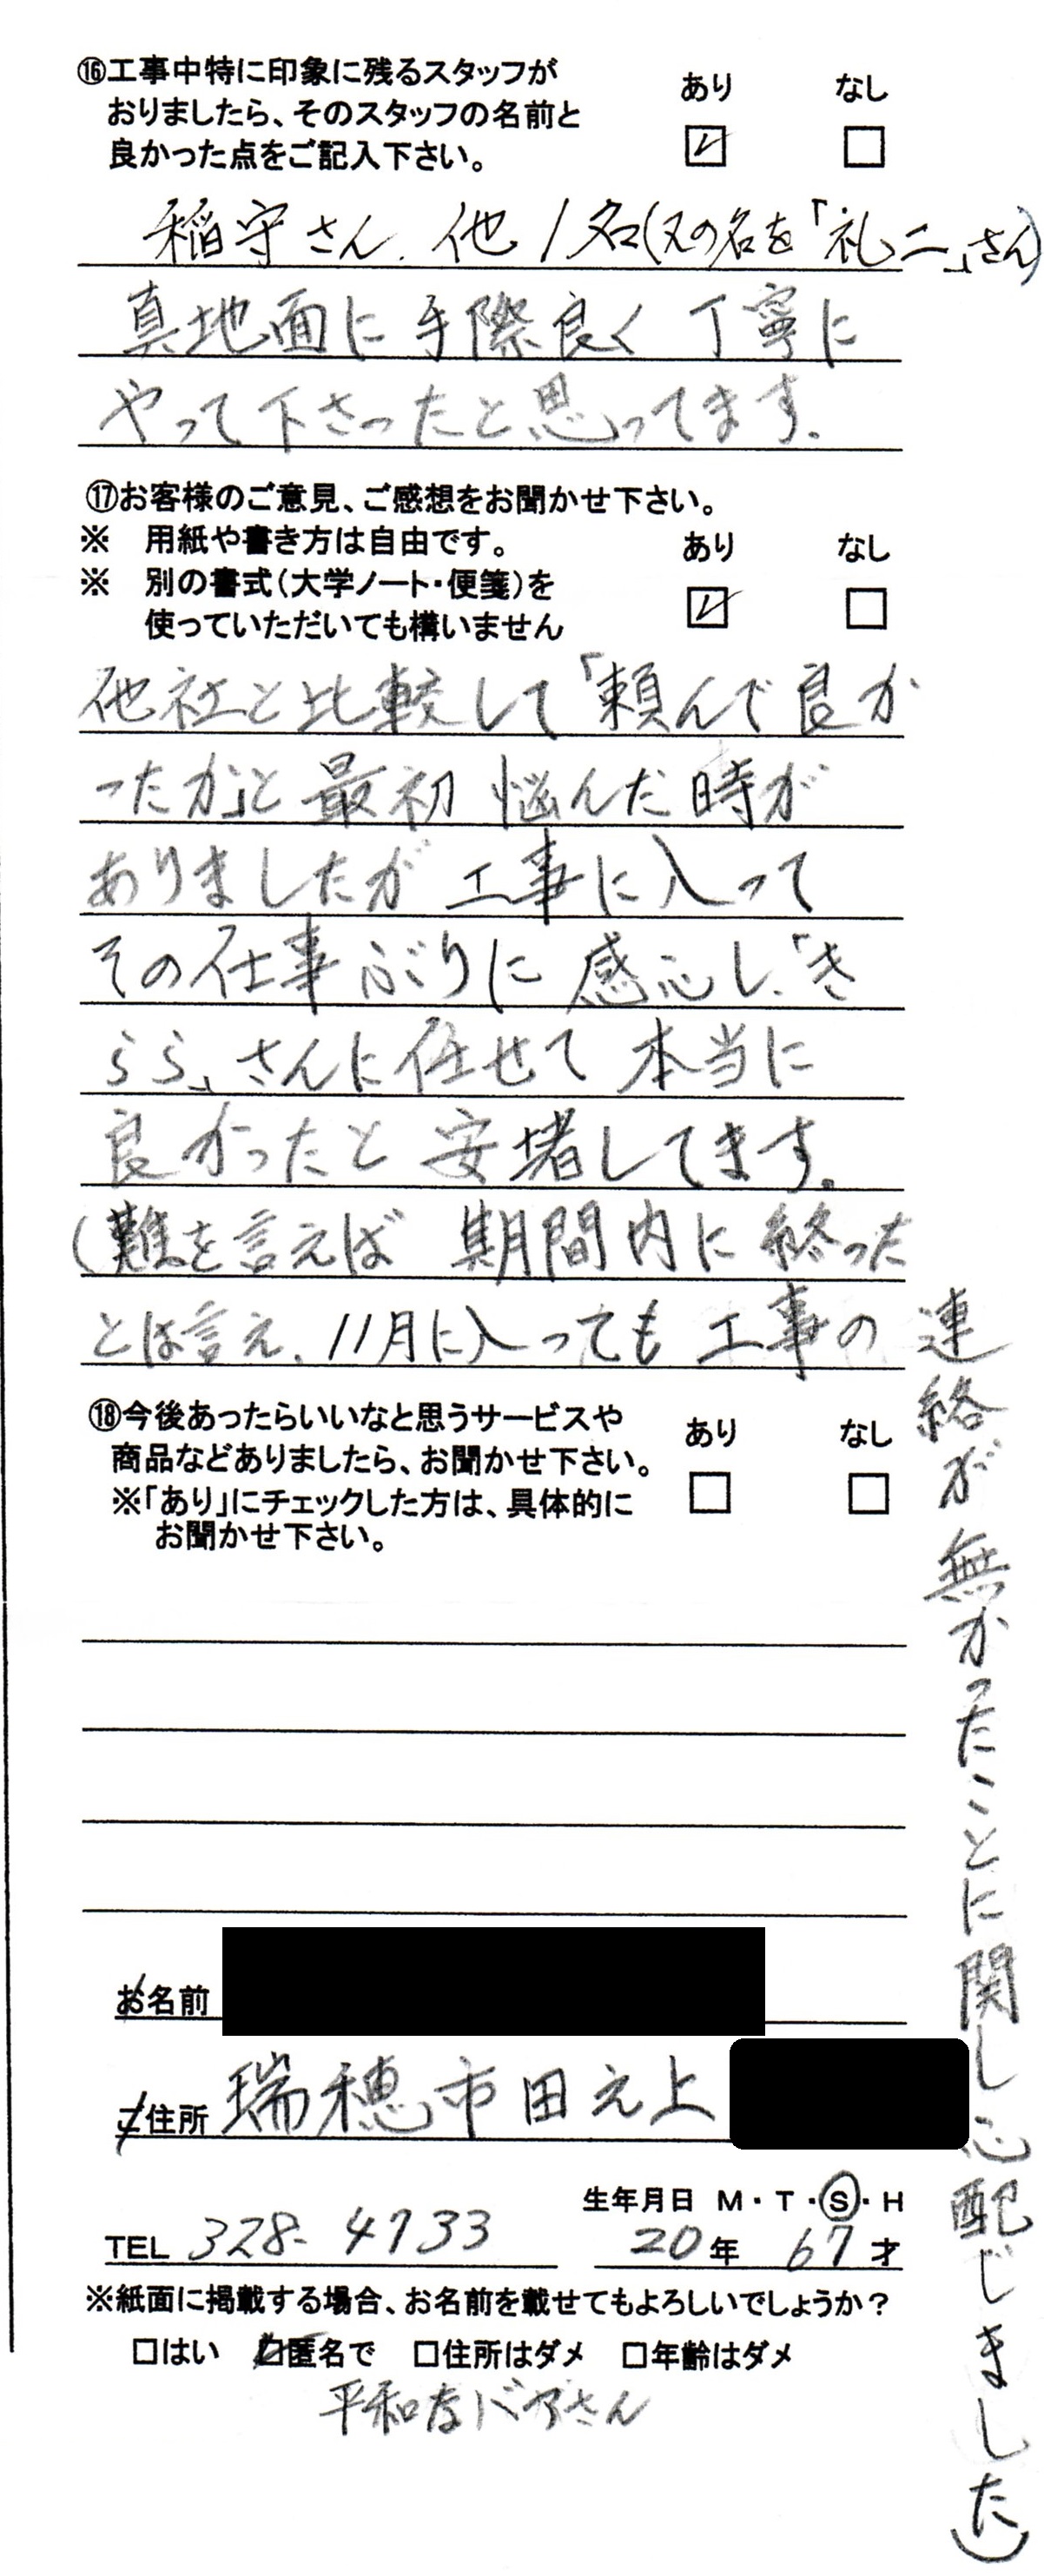 ⑯工事中特に印象に残るスタッフが
おりましたら、そのスタッフの名前と
良かった点をご記入下さい。
あり なし
稲守さん. 他1名(又の名を「礼二」さん)
真地面に手際良く 丁寧に
やって下さったと思ってます.
⑰お客様のご意見、ご感想をお聞かせ下さい。
※ 用紙や書き方は自由です。
※ 別の書式(大学ノート・便箋)を
使っていただいても構いません
あり なし
他社と比較して「頼んで良か
ったか」と最初 悩んだ時が
ありましたが 工事に入って
その仕事ぶりに 感心し、「き
らら」さんに任せて 本当に
良かったと 安堵してます。
(難を言えば 期間内に終った
とは言え、11月に入っても 工事の
連絡が無かったことに関し心配じました)
⑱今後あったらいいなと思うサービスや
商品などありましたら、お聞かせ下さい。
※「あり」にチェックした方は、具体的に
お聞かせ下さい。
あり なし
お名前
ご住所 瑞穂市田之上
生年月日 M・T・S・H
TEL 328-4733 20年 67才
※紙面に掲載する場合、お名前を載せてもよろしいでしょうか?
□はい □匿名で □住所はダメ □年齢はダメ
平和なバアさん